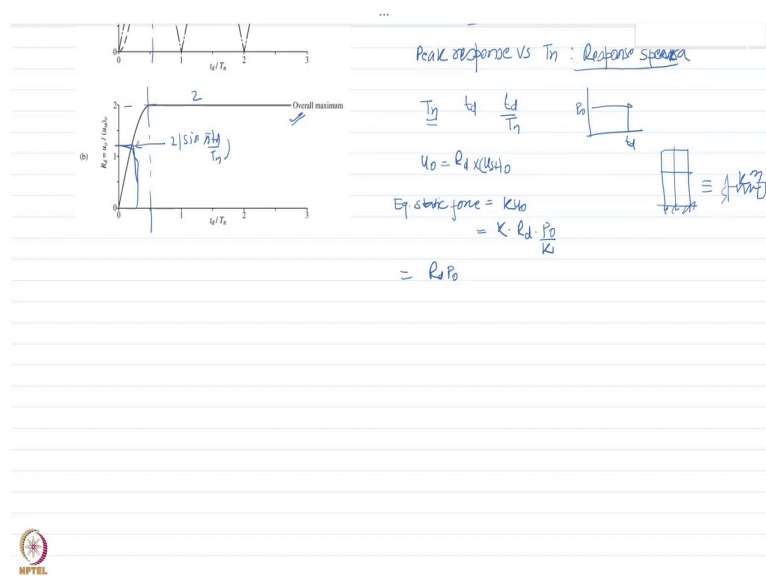 ...
0 1 2 3
t_d/T_n
(b)
R_d = u_o / (u_st)_o
2
1
0
2
Overall maximum
2|sin πtd/Tn|
0 1 2 3
t_d/T_n
Peak response vs Tn : Response spectra
Tn td td/Tn
P0
td
u0 = Rd x(ust)0
Eq. static force = Ku0
= K. Rd. P0/K
= Rd P0
≡
NPTEL